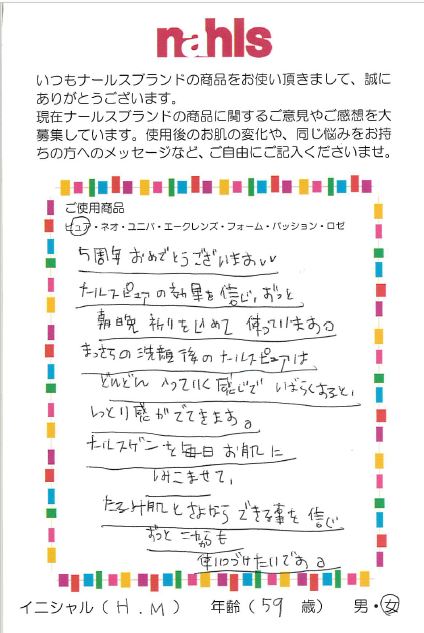 nahls
いつもナールスブランドの商品をお使い頂きまして、誠に
ありがとうございます。
現在ナールスブランドの商品に関するご意見やご感想を大
募集しています。使用後のお肌の変化や、同じ悩みをお持
ちの方へのメッセージなど、ご自由にご記入くださいませ。
ご使用商品
ピュア・ネオ・ユニバ・エークレンズ・フォーム・パッション・ロゼ
5周年おめでとうございます
ナールスピュアの効果を信じ、ずっと
朝晩 祈りを込めて 使っています。
まっさらの洗顔後のナールスピュアは
どんどん 入っていく感じで しばらくすると、
しっとり感がでてきます。
ナールスゲンを毎日お肌に
しみこませて、
たるみ肌とさよなら できる事を信じ
ずっと これからも
使いつづけたいです。
イニシャル(H.M) 年齢(59 歳) 男・女